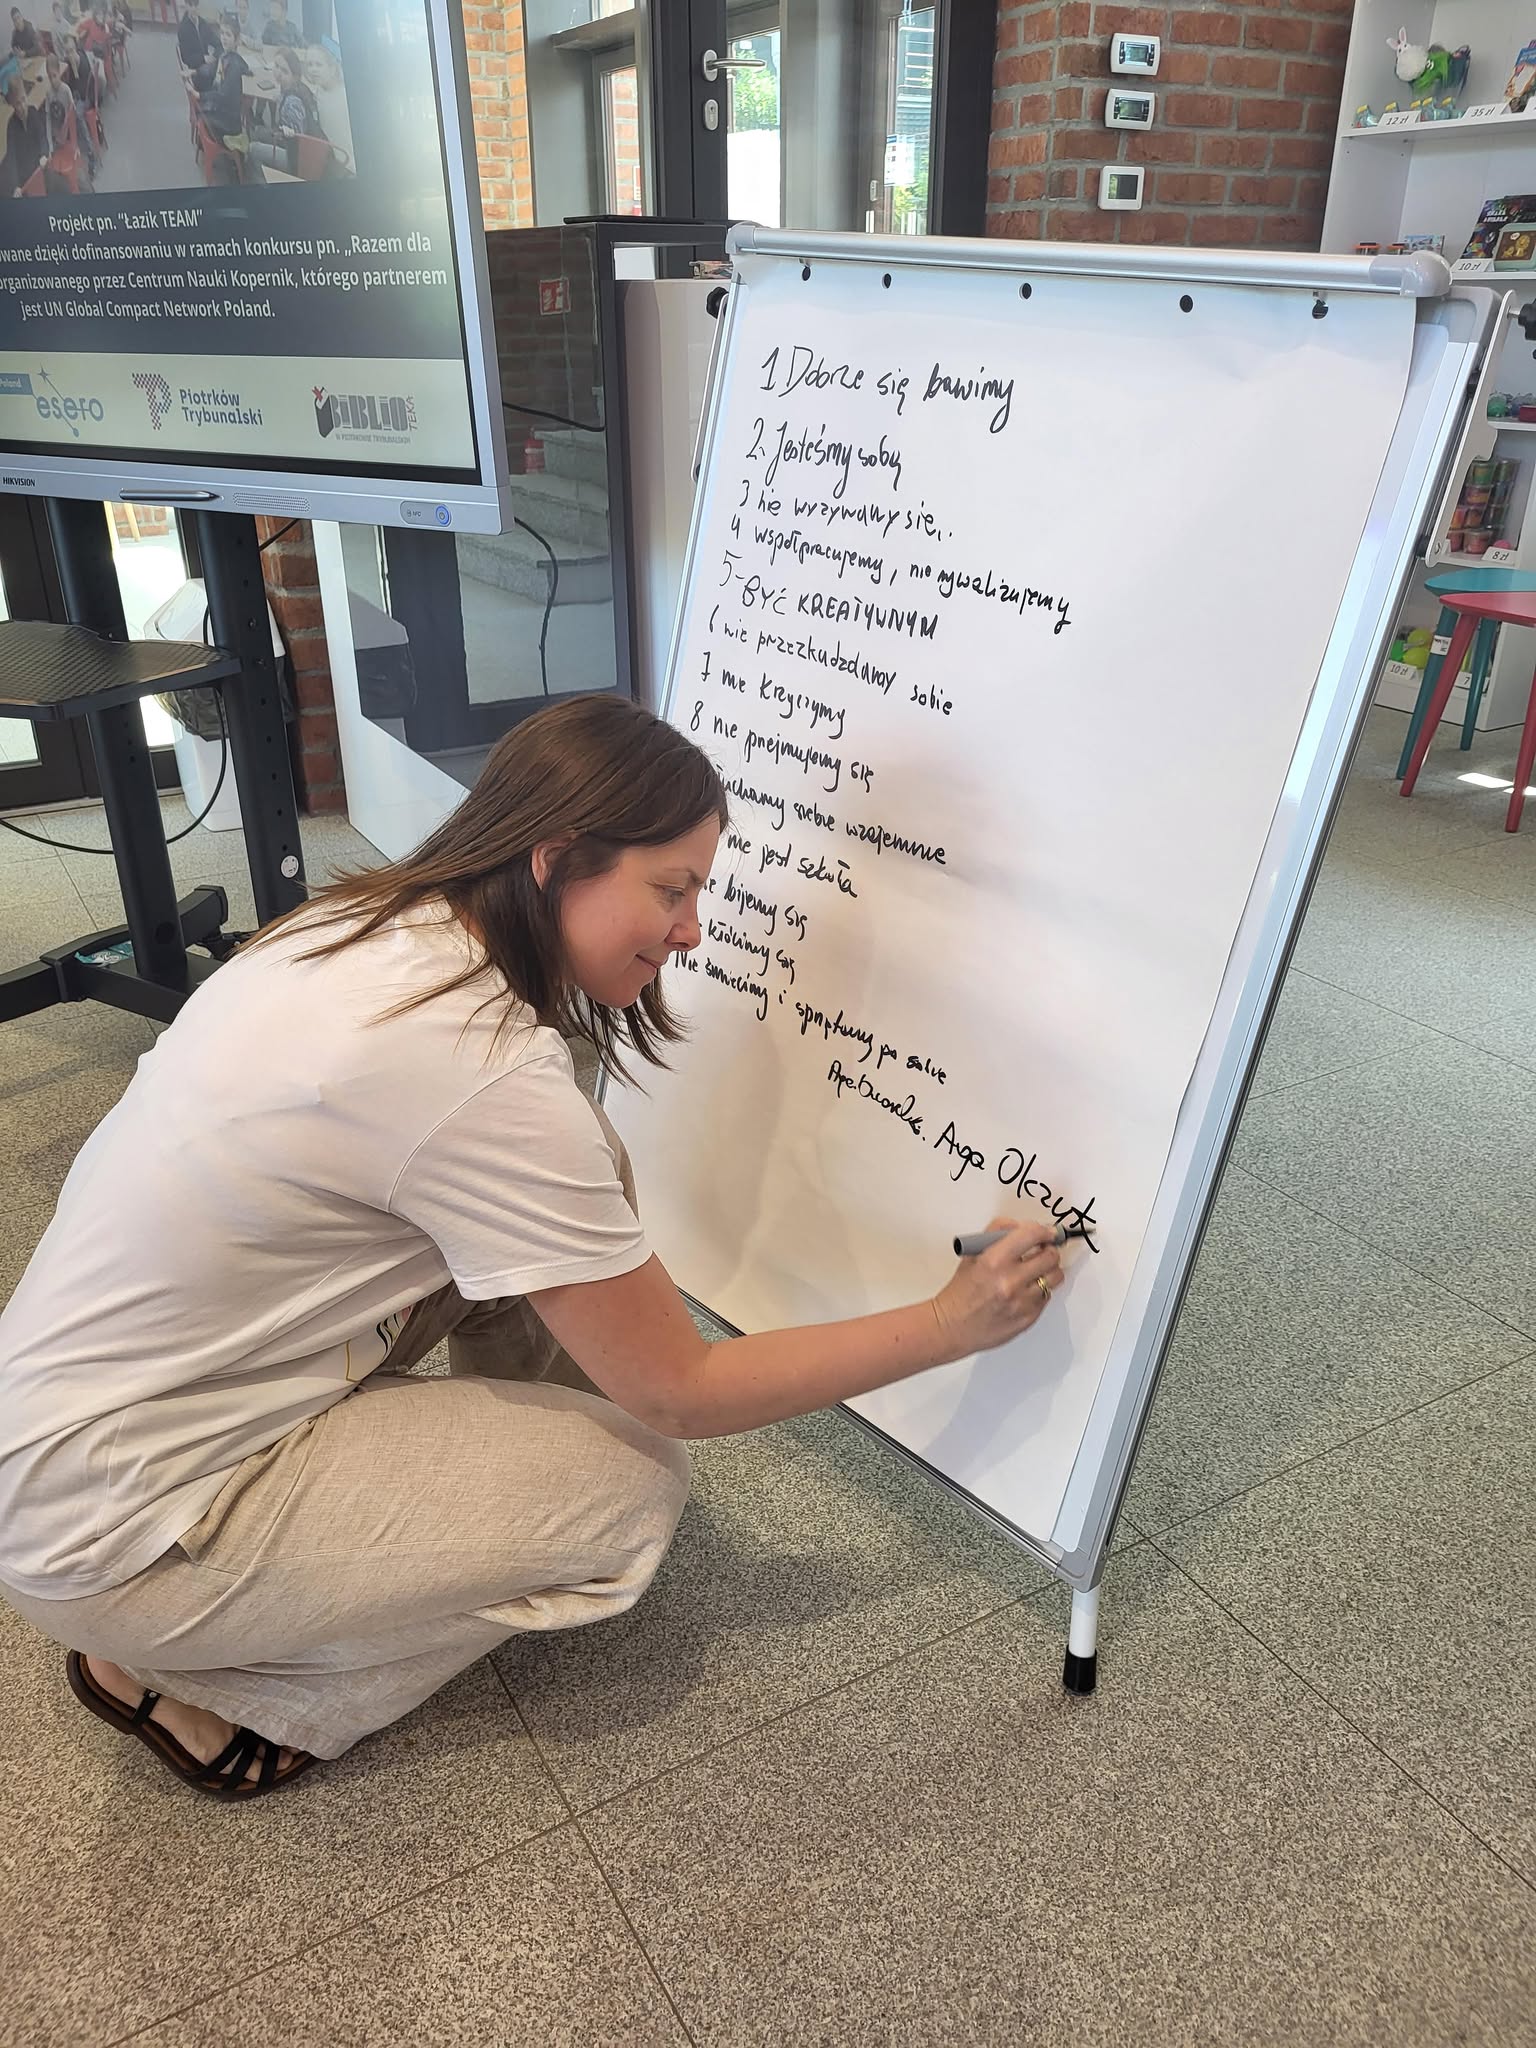 Projekt pn. "Łazik TEAM"
wane dzięki dofinansowaniu w ramach konkursu pn. „Razem dla
organizowanego przez Centrum Nauki Kopernik, którego partnerem
jest UN Global Compact Network Poland.
Poland
esero
Piotrków
Trybunalski
BIBLIO
TEKA
W PIOTRKOWIE TRYBUNALSKIM
HIKVISION
1 Dobrze się bawimy
2. Jesteśmy sobą
3 nie wyzywamy się..
4 współpracujemy, nie rywalizujemy
5-BYĆ KREATYWNYM
6 nie przeszkadzamy sobie
7 nie krzyczymy
8 nie przejmujemy się
uchamy siebie wzajemnie
nie jest szkoła
ie bijemy się
kłócimy się
Nie śmiecimy i sprzątamy po sobie
Aga Olczyk
12 zł
35 zł
10 zł
8 zł
10 zł